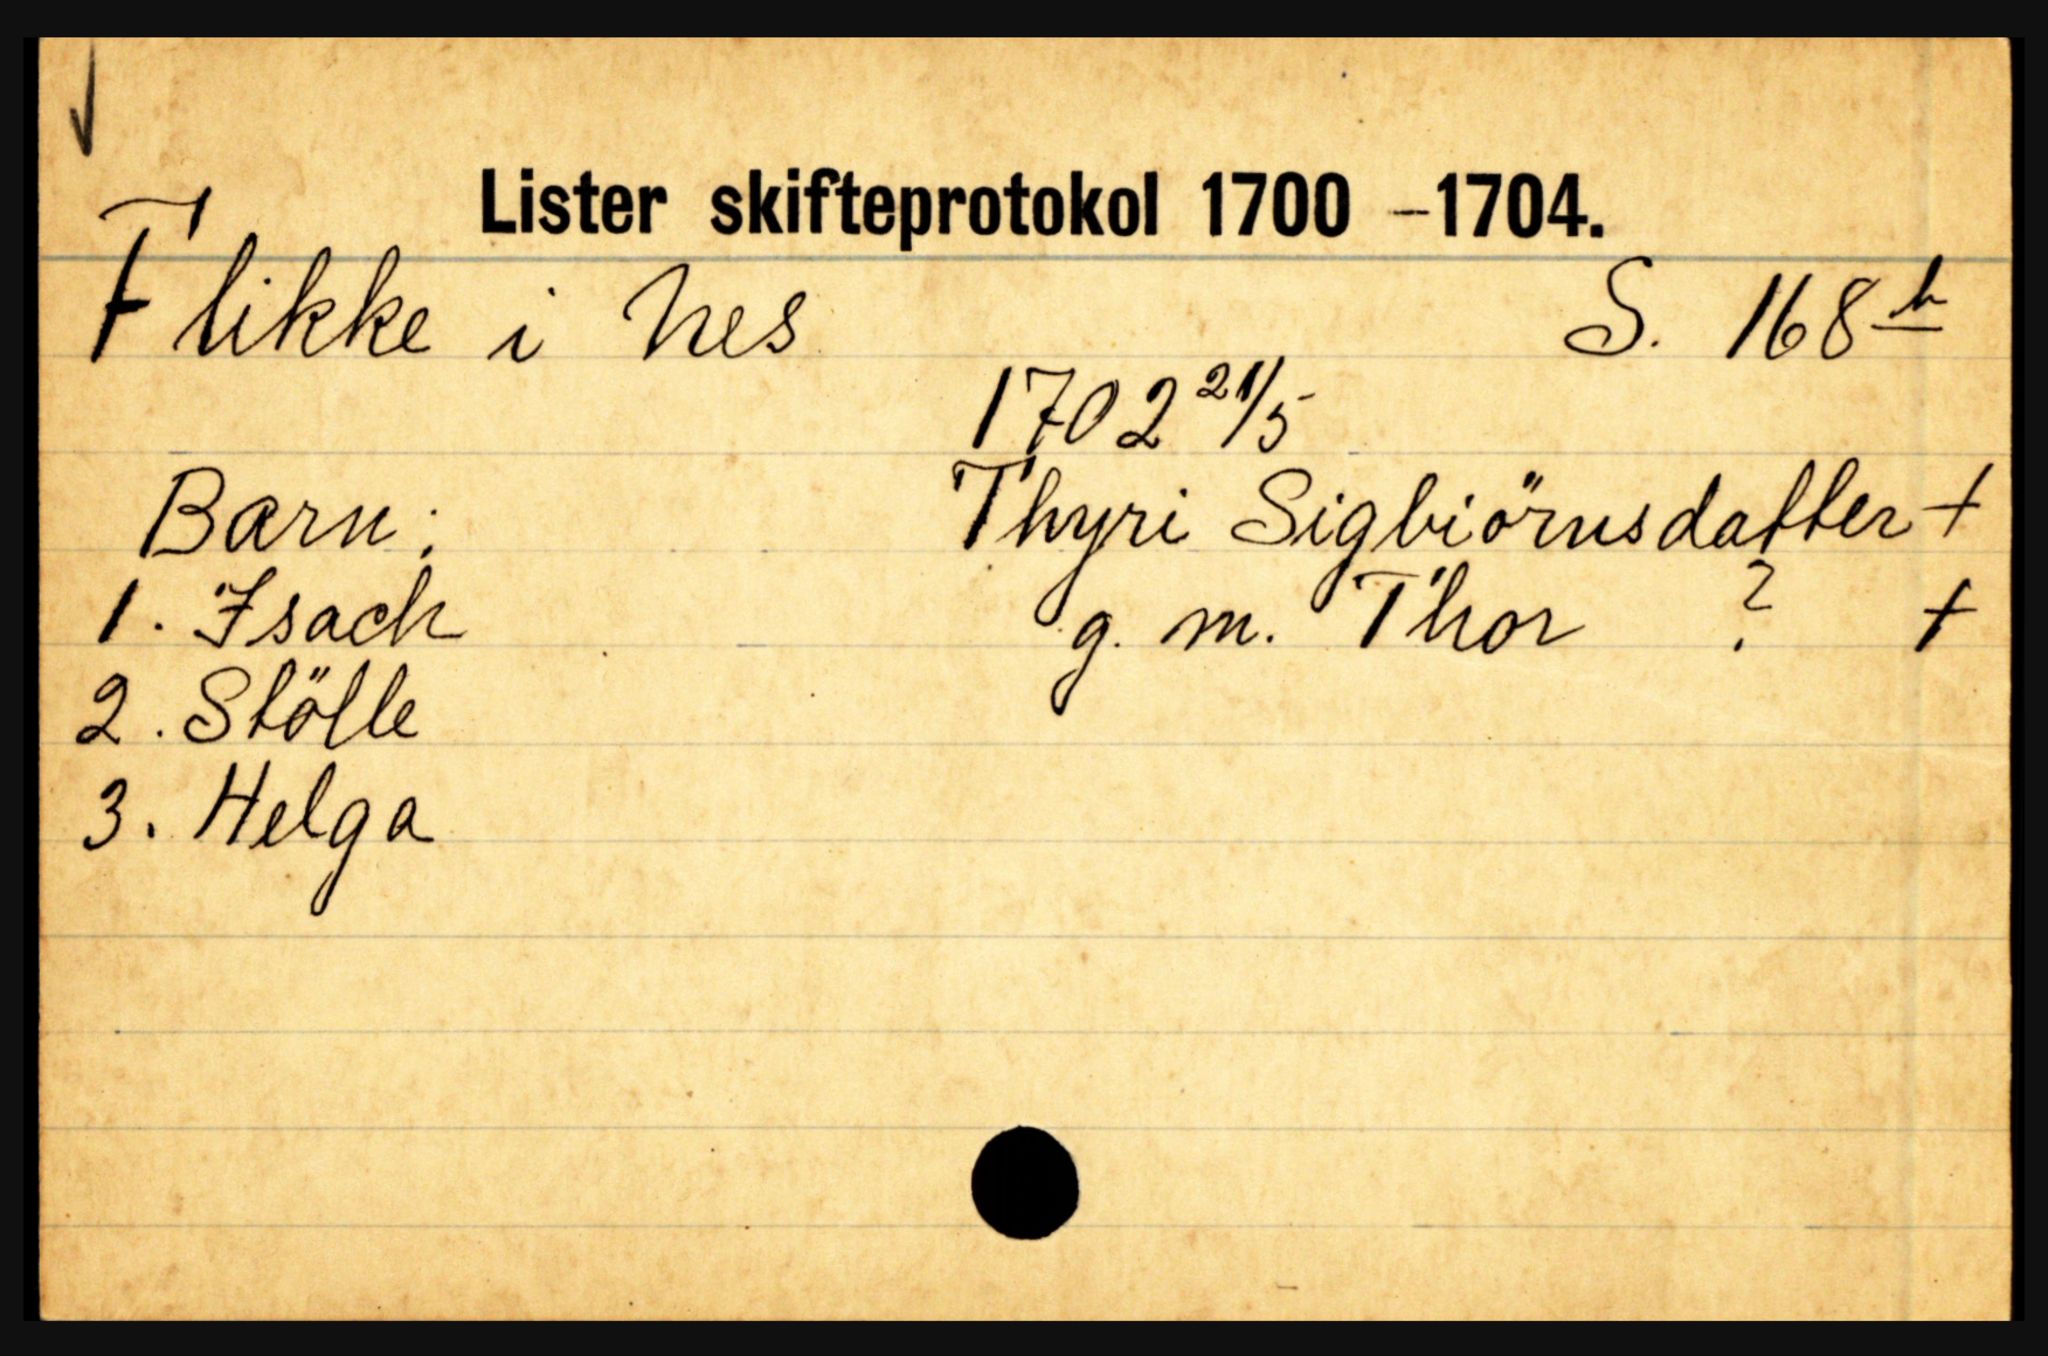 Lister skifteprotokol 1700 -1704.
Flikke i Nes S. 168 b
1702 21/5
Barn: Thyri Sigbiörnsdatter +
1. Isach g. m. Thor ? +
2. Stölle
3. Helga